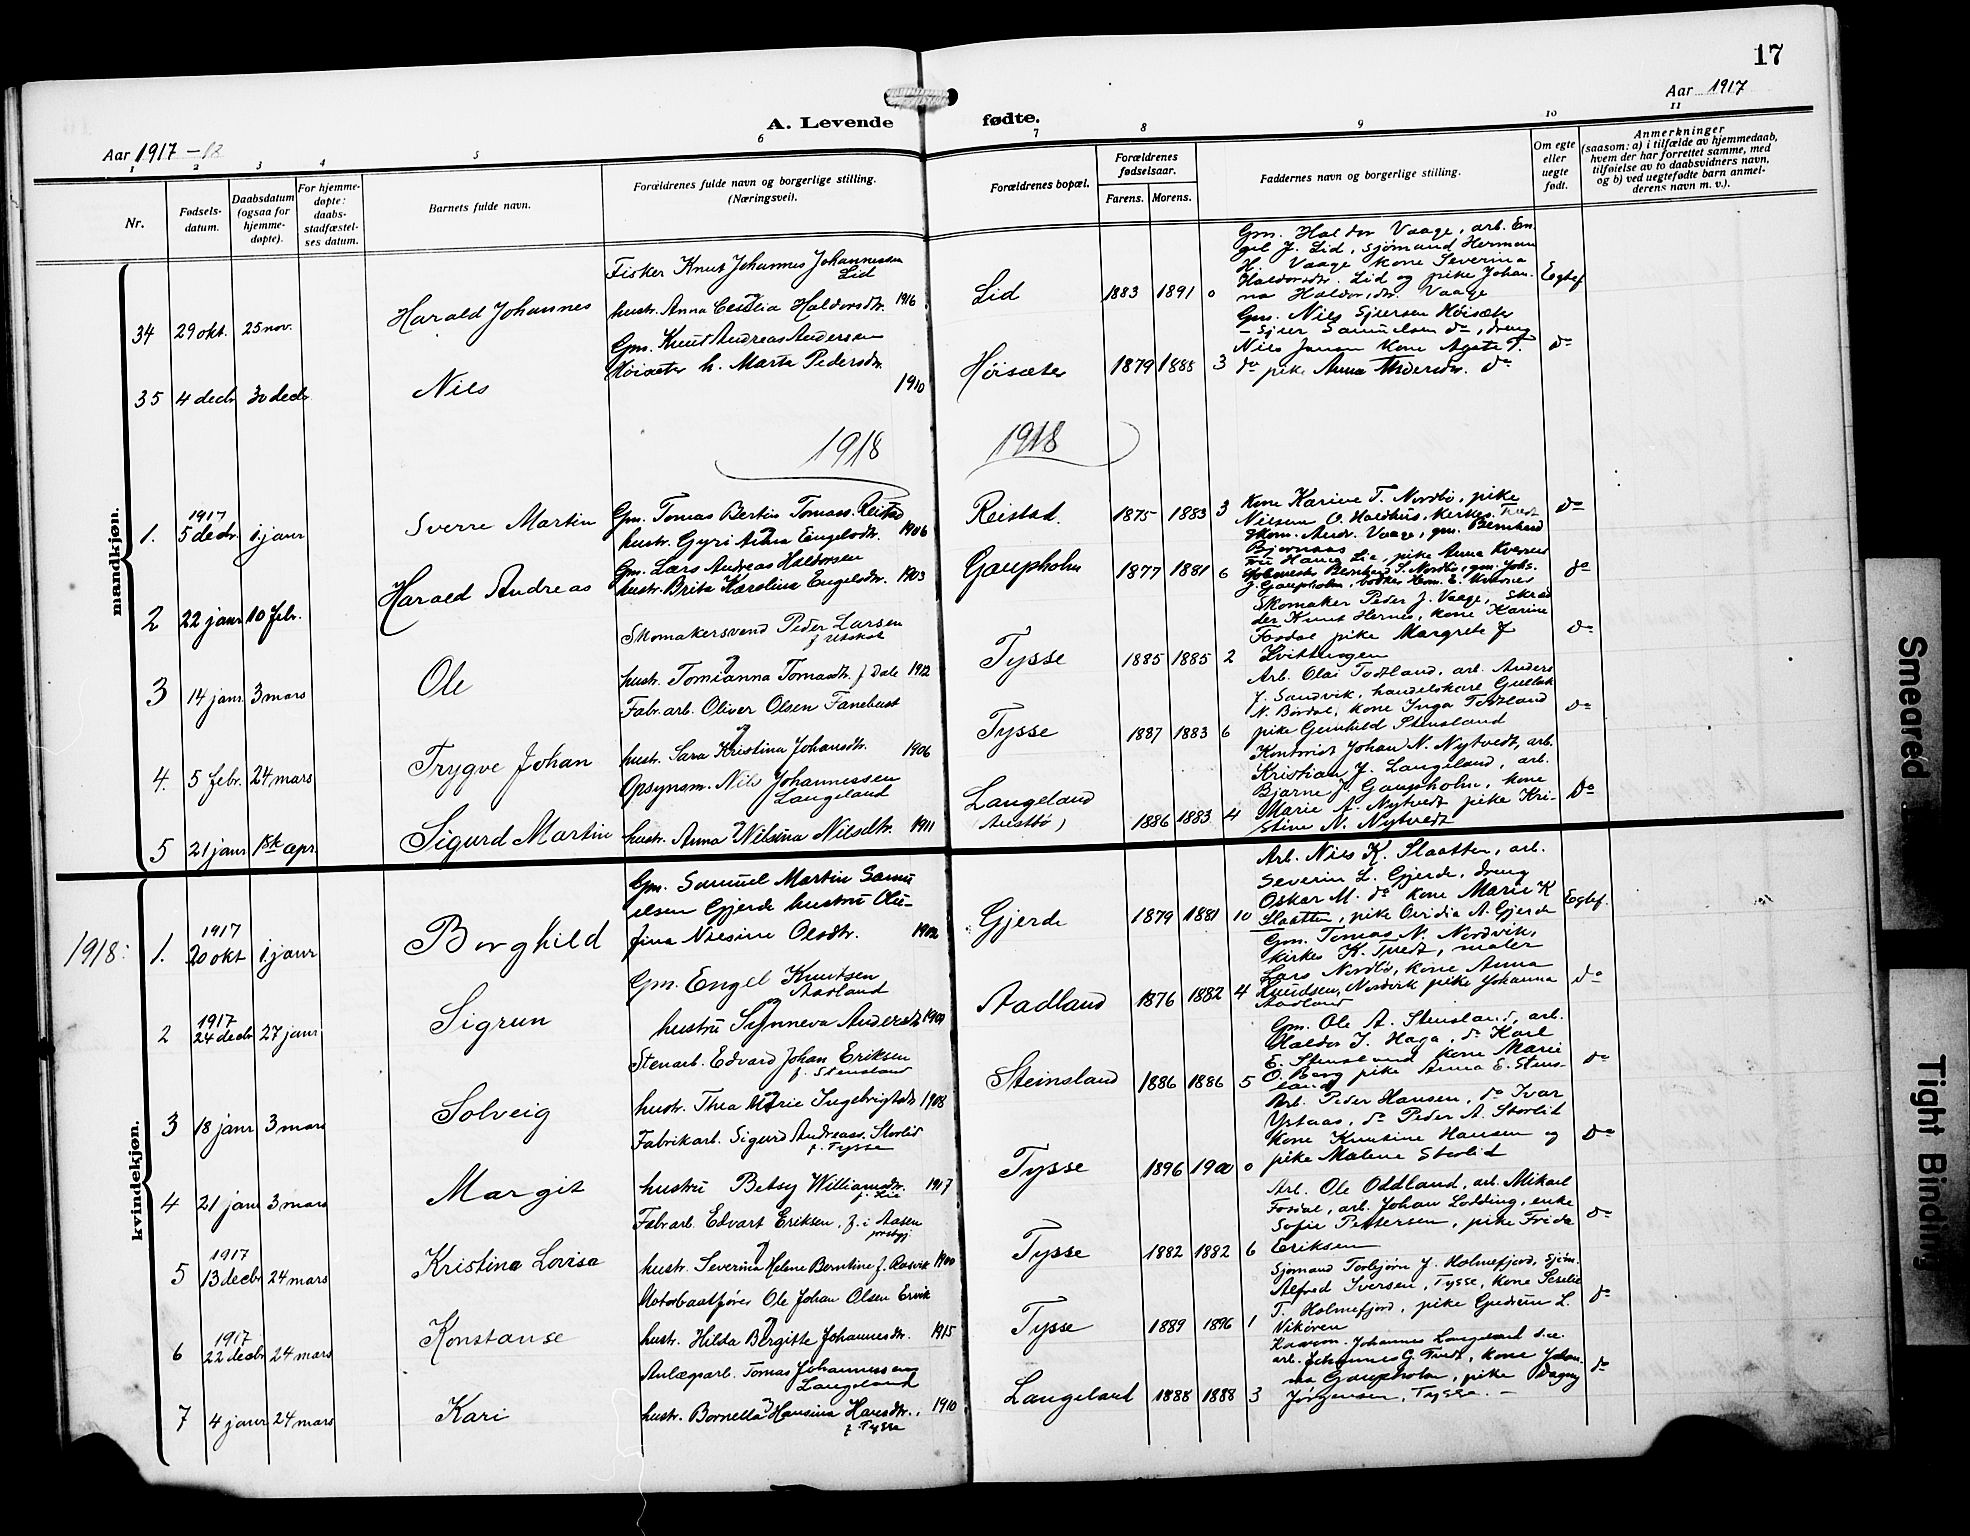 17
Aar 1917
A. Levende fødte.
Aar 1917 - 18
1 2 3 4 5 6 7 8 9 10 11
Nr.
Fødsels-
datum.
Daabsdatum
(ogsaa for
hjemme-
døpte).
For hjemme-
døpte:
daabs-
stadfæstel-
ses datum.
Barnets fulde navn.
Forældrenes fulde navn og borgerlige stilling.
(Næringsvei).
Forældrenes bopæl.
Forældrenes
fødselsaar.
Farens. Morens.
Faddernes navn og borgerlige stilling.
Om egte
eller
uegte
født.
Anmerkninger
(saasom: a) i tilfælde av hjemmedaab,
hvem der har forrettet samme, med
tilføielse av to daabsvidners navn,
og b) ved uegtefødte barn anmel-
derens navn m. v.).
mandkjøn.
34 29 okt. 25 nov. Harald Johannes
Fisker Knut Johannes Johannessen
Lid
hustr. Anna Cecilia Haldorsdtr. 1916
Lid 1883 1891 0
Gm. Haldor Vaage, arb. En-
gel J. Lid, sjømand Herman
H. Vaage kone Severina
Haldorsdtr. Lid og pike Johan-
na Haldorsdtr. Vaage
Egtef
35 4 decbr 30 decbr Nils
Gm. Knut Andreas Andersen
Høisæter h. Marta Pedersdtr.
1910
Høisæter 1879 1888 3
Gm. Nils Sjursen Høisæter
- Sjur Samuelsen do, dreng
Nils Jansen kone Agate T.
do pike Anna Andersdtr. do
do
1918 1918
1. 1917
5 decbr. 1 janr Sverre Martin
Gm. Tomas Bertin Tomass. Reistad
hustr. Gyri Anna Engelsdtr. 1906
Reistad. 1875 1883 3
Kone Karine T. Nordbø, pike
Nielsine O. Haldhus, kirkes. Tvedt
Skom. Andr. Vaage, gm. Bernhard
Bjørnaas
do
2 22 janr 10 febr. Harald Andreas
Gm. Lars Andreas Haldorsen
hustr. Brita Karolina Engelsdtr. 1903
Gaupholm 1877 1881 6
Fru Hanna Lie, pike Anna Kvernes
Bernhard S. Nordbø, gm. Johs.
J. Gaupholm, Hem. E. Kvernes
do
3 14 janr 3 mars Ole
Skomakersvend Peder Larsen
hustr. Tomianna Tomasdtr. f Dale 1912
Tysse 1885 1885 2
Skomaker Peder J. Vaage, Skræd
der Knut Hernes, kone Karine
Fosdal pike Margrete J
do
4. 5 febr. 24 mars Trygve Johan
Fabr. arb. Oliver Olsen Fanebust
hustr. Sara Kristina Johansdtr. 1906
Tysse 1887 1883 6
Arb. Olai Todland, arb. Anders
J. Sandvik, handelskare Gullak
N. Børdal, kone Inga Todland
pike Gunhild Stensland
do
5 21 janr 1ste apr. Sigurd Martin
Opsynsm. Nils Johannessen
Langeland
hustr. Anna Nilsina Nilsdtr. 1911
Langeland
(Austbø) 1886 1883 4
Kontorist Johan N. Nytvedt, arb.
Kristian J. Langeland, arb.
Bjarne J. Gaupholm, kone
Marie A. Nytvedt pike Kri-
stine N. Nytvedt
Do
kvindekjøn.
1918: 1. 1917
20 okt 1 janr Borghild
Gm. Samuel Martin Samu
elsen Gjerde hustru Olu-
fina Nilsine Olsdtr. 1902
Gjerde 1879 1881 10
Arb. Nils K. Slaatten, arb.
Severin L. Gjerde, dreng
Oskar M. do kone Marie K
Slaatten, pike Ovidia A. Gjerde
Egtef.
2 1917
24 decbr 27 janr Sigrun
Gm. Engel Knutsen
Aadland
hustru Synneva Andersdtr 1909
Aadland 1876 1882 4
Gm. Tomas N. Nordvik,
kirkes K. Tvedt, maler
Lars Nordbø, kone Anna
Knudsen, Nordvik pike Johanna
Aadland
do
3 18 janr 3 mars Solveig
Stenarb. Edvard Johan Eriksen
f. Stensland
hustr. Thea Marie Ingebrigtsdtr 1908
Steinsland 1886 1886 5
Gm. Ole A. Stensland, arb.
Haldor J. Haga, do Karl
E. Stensland kone Marie
O. Berg pike Anna E. Stens-
land
do
4 21 janr 3 mars Margit
Fabrikarb. Sigurd Andreass. Storlid
f. Tysse
hustru Betsy Williamsdtr. 1917
f. Lie
Tysse 1896 1900 0
Arb. Peder Hansen, do Ivar
Ystaas, do Peder A. Storlid
kone Knutsine Hansen og
pike Malene Storlid
do
5 1917
13 decbr 24 mars Kristina Lovisa
Fabr. arb. Edvart Eriksen, f. i Aasen
hustr. Severina Helene Berntine f. Rosvik 1900
Tysse 1882 1882 6
Arb. Ole Oddland, arb. Mikal
Fosdal, arb. Johan Lodding, enke
Sofie Pettersen, pike Frida
Eriksen
do
6 1917
22 decbr 24 mars Konstanse
Motorbaatfører Ole Johan Olsen Ervik
hustr. Hilda Bergitte Johannesdtr. 1915
Tysse 1889 1896 1
Sjømand Torbjørn J. Holmefjord, Sjøm.
Alfred Iversen, Tysse, kone Seselie
T. Holmefjord, pike Gudrun L.
Vikøren
do
7 4 janr 24 mars Kari
Anlægsarb. Tomas Johannessen
Langeland
hustr. Bornella Hansina Hansdtr. 1910
f. Tysse
Langeland 1888 1888 3
Johannes Langeland
arb. Johannes G. Tvedt, kone Johan-
na Gaupholm, pike Dagny
Jørgensen, Tysse. -
do
Smeared
Tight Binding